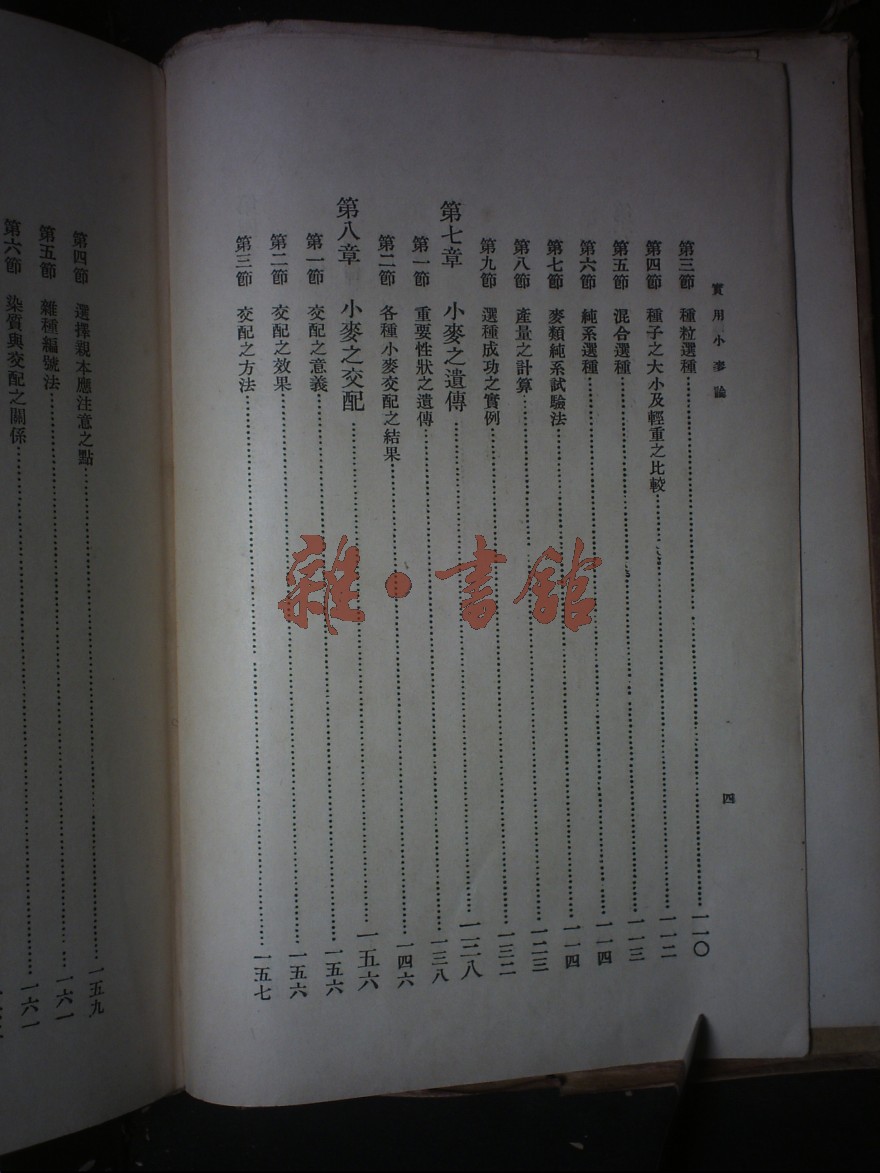 實用小麥論
四
第三節 種粒選種……一一〇
第四節 種子之大小及輕重之比較……一一二
第五節 混合選種……一一三
第六節 純系選種……一一四
第七節 麥類純系試驗法……一一四
第八節 產量之計算……一二三
第九節 選種成功之實例……一三二
第七章 小麥之遺傳……一三八
第一節 重要性狀之遺傳……一三八
第二節 各種小麥交配之結果……一四六
第八章 小麥之交配……一五六
第一節 交配之意義……一五六
第二節 交配之效果……一五六
第三節 交配之方法……一五七
第四節 選擇親本應注意之點……一五九
第五節 雜種編號法……一六一
第六節 染質與交配之關係……一六一
雜·書館